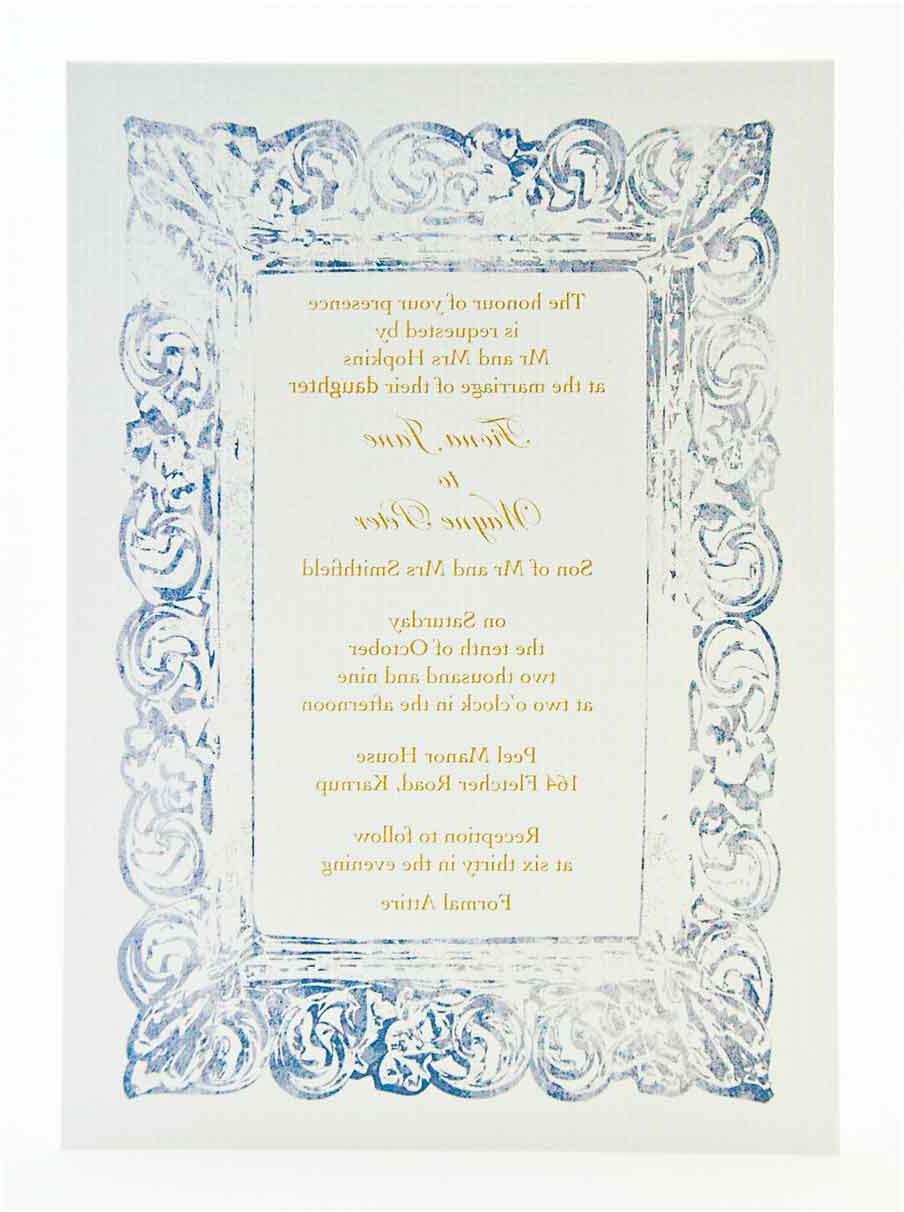 The honour of your presence
is requested by
Mr and Mrs Hopkins
at the marriage of their daughter
Fiona Jane
to
Wayne Peter
Son of Mr and Mrs Smithfield
on Saturday
the tenth of October
two thousand and nine
at two o'clock in the afternoon
Peel Manor House
164 Fletcher Road, Karnup
Reception to follow
at six thirty in the evening
Formal Attire